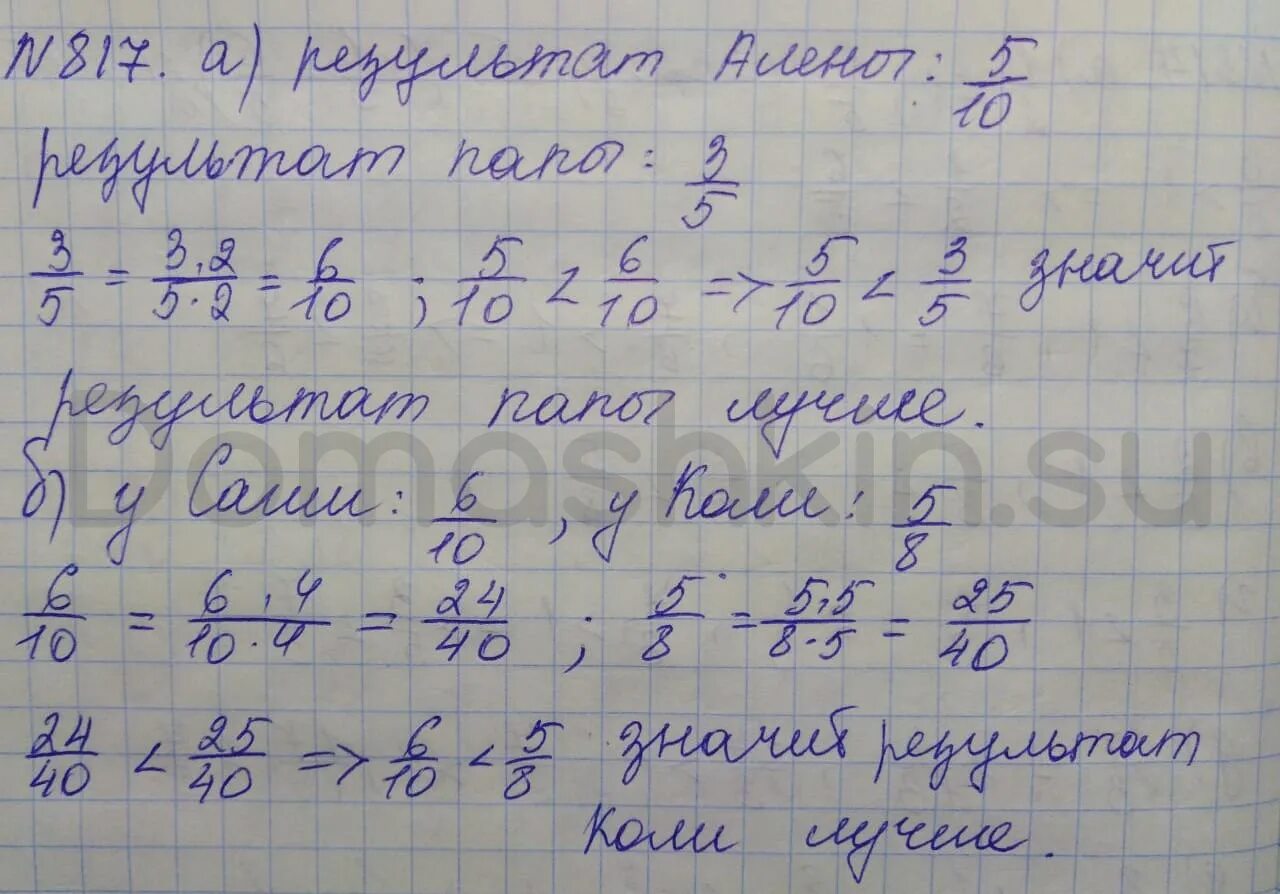 N 817. а) результат Алены: 5/10
результат папы: 3/5
3/5 = 3·2/5·2 = 6/10 ; 5/10 < 6/10 => 5/10 < 3/5 значит
результат папы лучше.
Domashkin.su
б) у Саши: 6/10 , у Коли: 5/8
6/10 = 6·4/10·4 = 24/40 ; 5/8 = 5·5/8·5 = 25/40
24/40 < 25/40 => 6/10 < 5/8 значит результат
Коли лучше.